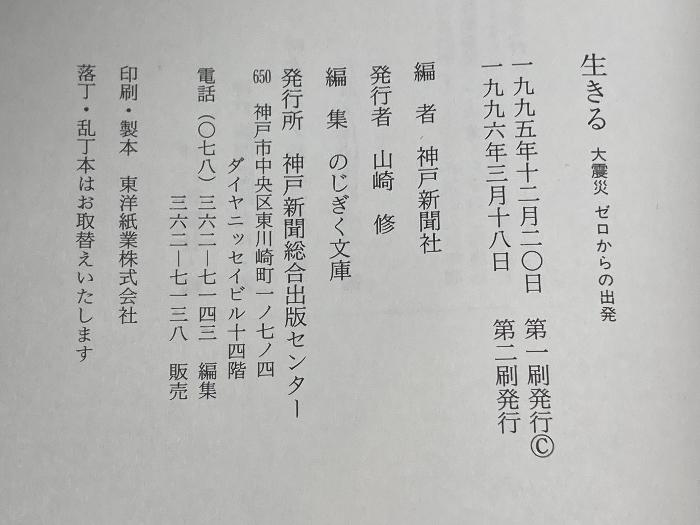 生きる 大震災 ゼロからの出発
一九九五年十二月二〇日 第一刷発行©
一九九六年三月十八日 第二刷発行
編 者 神戸新聞社
発行者 山崎 修
編 集 のじぎく文庫
発行所 神戸新聞総合出版センター
650 神戸市中央区東川崎町一ノ七ノ四
ダイヤニッセイビル十四階
電話(〇七八)三六二―七一四三 編集
三六二―七一三八 販売
印刷・製本 東洋紙業株式会社
落丁・乱丁本はお取替えいたします